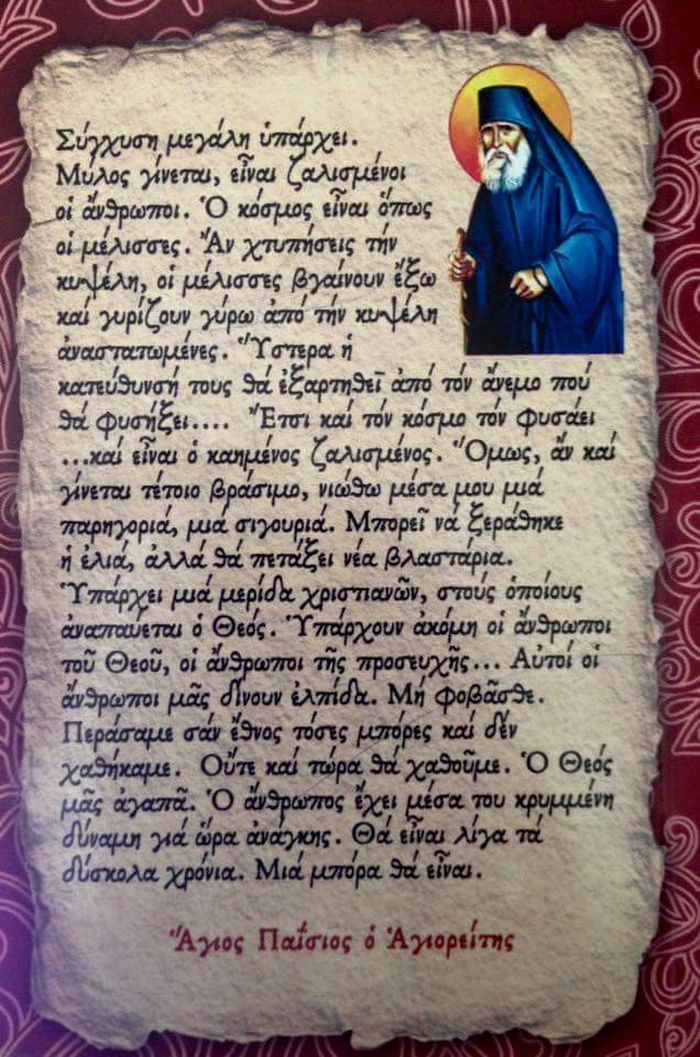 Σύγχυση μεγάλη ὑπάρχει.
Μύλος γίνεται, εἶναι ζαλισμένοι
οἱ ἄνθρωποι. Ὁ κόσμος εἶναι ὅπως
οἱ μέλισσες. Ἄν χτυπήσεις τήν
κυψέλη, οἱ μέλισσες βγαίνουν ἔξω
καί γυρίζουν γύρω ἀπό τήν κυψέλη
ἀναστατωμένες. Ὕστερα ἡ
κατεύθυνσή τους θά ἐξαρτηθεῖ ἀπό τόν ἄνεμο πού
θά φυσήξει.... Ἔτσι καί τόν κόσμο τόν φυσάει
...καί εἶναι ὁ καημένος ζαλισμένος. Ὅμως, ἄν καί
γίνεται τέτοιο βράσιμο, νιώθω μέσα μου μιά
παρηγοριά, μιά σιγουριά. Μπορεῖ νά ξεράθηκε
ἡ ἐλιά, ἀλλά θά πετάξει νέα βλαστάρια.
Ὑπάρχει μιά μερίδα χριστιανῶν, στούς ὁποίους
ἀναπαύεται ὁ Θεός. Ὑπάρχουν ἀκόμη οἱ ἄνθρωποι
τοῦ Θεοῦ, οἱ ἄνθρωποι τῆς προσευχῆς... Αὐτοί οἱ
ἄνθρωποι μᾶς δίνουν ἐλπίδα. Μή φοβᾶσθε.
Περάσαμε σάν ἔθνος τόσες μπόρες καί δέν
χαθήκαμε. Οὔτε καί τώρα θά χαθοῦμε. Ὁ Θεός
μᾶς ἀγαπᾶ. Ὁ ἄνθρωπος ἔχει μέσα του κρυμμένη
δύναμη γιά ὥρα ἀνάγκης. Θά εἶναι λίγα τά
δύσκολα χρόνια. Μιά μπόρα θά εἶναι.
Ἅγιος Παΐσιος ὁ Ἁγιορείτης